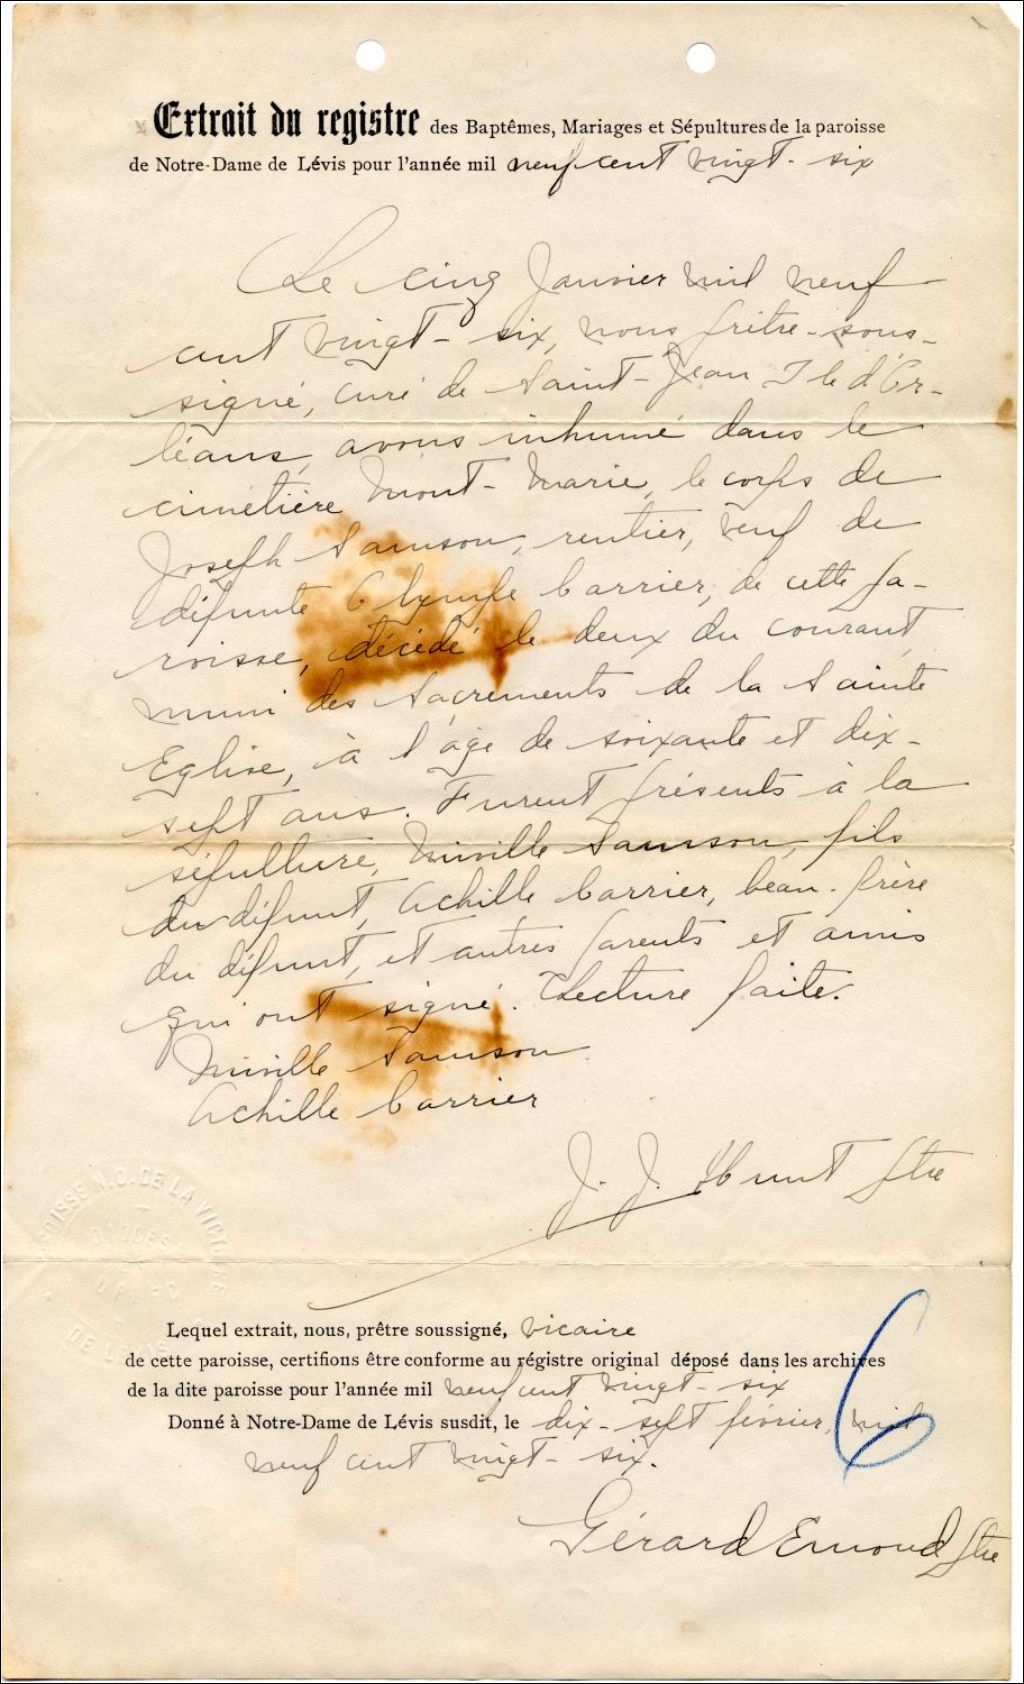 Extrait du registre des Baptêmes, Mariages et Sépultures de la paroisse
de Notre-Dame de Lévis pour l'année mil neuf cent vingt-six
Le cinq Janvier mil neuf
cent vingt-six, nous prêtre-sous-
signé, curé de Saint-Jean Ile d'Or-
léans, avons inhumé dans le
cimetière Mont-Marie, le corps de
Joseph Samson, rentier, veuf de
défunte Olympe Carrier, de cette pa-
roisse, décédé le deux du courant,
muni des Sacrements de la Sainte
Eglise, à l'âge de soixante et dix-
sept ans. Furent présents à la
sépulture, Miville Samson, fils
du défunt, Achille Carrier, beau-frère
du défunt, et autres parents et amis
qui ont signé. Lecture faite.
Miville Samson
Achille Carrier
J. J. Hunt Ptre
PAROISSE N.D. DE LA VICTOIRE
DE LÉVIS
Lequel extrait, nous, prêtre soussigné, vicaire
de cette paroisse, certifions être conforme au régistre original déposé dans les archives
de la dite paroisse pour l'année mil neuf cent vingt-six
Donné à Notre-Dame de Lévis susdit, le dix-sept février, mil
neuf cent vingt-six.
Gérard Emond Ptre